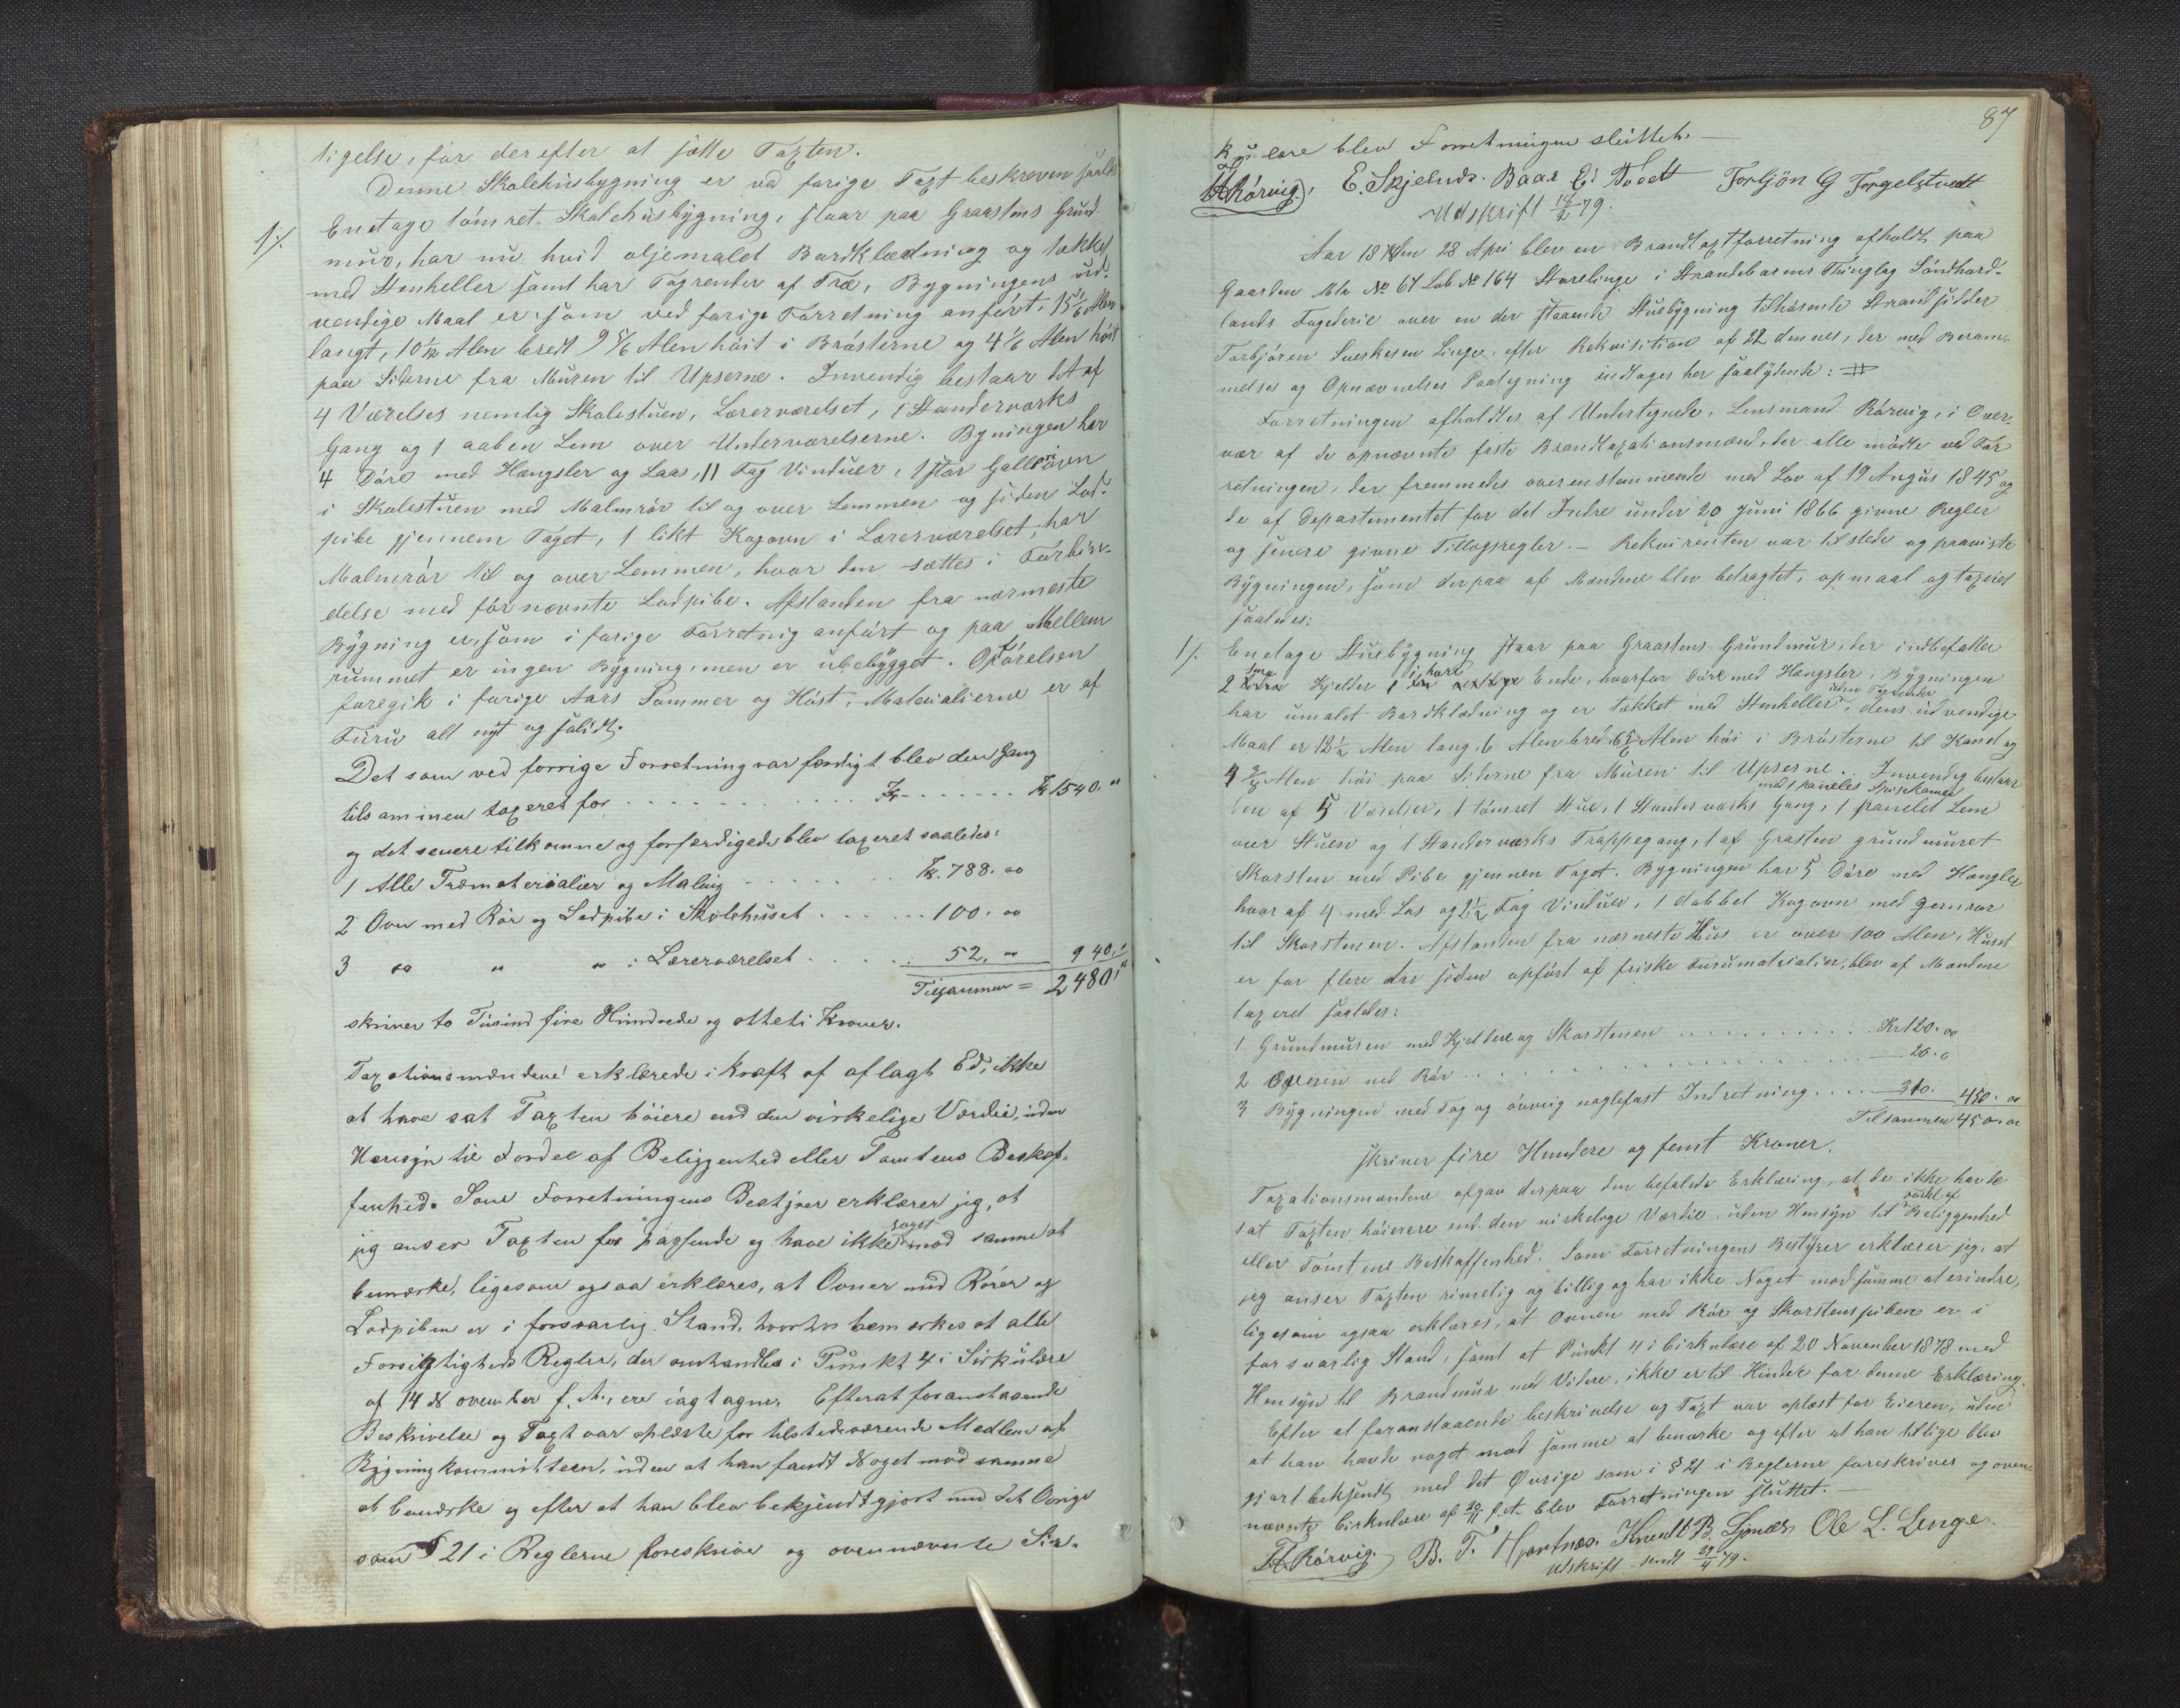 tigelse, for derefter at sætte Taxten.
Denne Skolehusbygning er ved forige Taxt beskreven saalds
1/. Enetage tømret Skolehusbygning, staar paa Graastens Grund
mur, har nu hvid oljemalet Bordklædning og tækket
med Stenheller samt har Tagrender af Træ, Bygningens ud-
vendige Maal er som ved forige Forretning anført, 15 Alen
langt, 10 1/12 Alen bredt 9 5/6 Alen høit i Brøsterne og 4 1/6 Alen høit
paa Siderne fra Muren til Upserne. Invendig bestaar det af
4 Værelses nemlig Skolestuen, Lærerværelset, 1 Standerværks
Gang og 1 aaben Lem over Underværelserne. Bygningen har
4 Døre med Hængsler og Laas, 11 Fag Vinduer, 1 stor Galleovn
i Skolestuen med Malmrør til og over Lemmen og siden Lod-
pibe gjennem Taget, 1 likt Kogovn i Lærerværelset, har
Malmrør til og over Lemmen, hvor den sættes i Forbin-
delse med førnævnte Lodpibe. Afstanden fra nærmeste
Bygning er, som i forige Forretnig anført og paa Mellem
rummet er ingen Bygning, men er ubebygget. Opførelsen
foregik i forige Aars Sommer og Høst, Materialierne er af
Furu alt nyt og solidt.
Det som ved forrige Forretning var færdigt blev den Gang
tilsammen taxeret for . . . . . . Kr . . . . Kr 1540."
og det senere tilkomne og forfærdigede blev taxeret saaledes:
1 Alle Træmaterialier og Maling . . . . Kr. 788. oo
2 Ovn med Rør og Lodpibe i Skolehuset . . . . 100. oo
3 do " " i Lærerværelset . . . . 52, " 940,"
Tilsammen = 2480,"
skriver to Tusind fire Hundrede og otteti Kroner.
Taxationsmændene erklærede i Kraft af aflagt Ed, ikke
at have sat Taxten høiere end den virkelige Værdie, uden
Hensyn til Fordel af Beliggenhed eller Tomtens Beskaf-
fenhed. Som Forretningens Bestyrer erklærer jeg, at
jeg anser Taxten for passende og have ikke noget mod samme at
bemærke, ligesom ogsaa erklæres, at Ovner med Rører og
Lodpiben er i forsvarlig Stand, hvorhos bemærkes at alle
Forsigtigheds Regler, der omhandles i Punkt 4 i Sirkulære
af 14 November f. A., ere iagtagne. Efterat foranstaaende
Beskrivelse og Taxt var oplæste for tilstedeværende Medlem af
Bygningkommitteen, uden at han fandt Noget mod samme
at bemærke og efter at han blev bekjendtgjort med det Øvrige
som § 21 i Reglerne foreskrive og ovennævnte Sir-
87
kulære blev Forretningen sluttet. —
Rørvig. E. Skjelnds. Baar E. Tvedt Torbjön G Torgelstvedt
Udskrift 79.
Aar 1879 den 28 April blev en Brandtaxtforretning afholdt paa
Gaarden Mtr No 67 Lob No 164 Storelinge i Strandebarms Thinglag Söndhord-
lands Fogederie over en der staaende Stuebygning tilhørende Strandsidder
Torbjøren Sverkesen Linge, efter Rekvisition af 22 dennes, der med Beram-
melses og Opnævnelses Paategning indtages her saalydende:
Forretningen afholdtes af Undertegnede, Lensmand Rørvig, i Over-
vær af de opnævnte faste Brandtaxationsmænd, der alle mødte ved For
retningen, der fremmedes overenstemmende med Lov af 19 Augus 1845 og
de af Departementet for det Indre under 20 Juni 1866 givne Regler
og senere givne Tillægsregler. — Rekvirenten var tilstede og paaviste
Bygningen, som derpaa af Mændene blev betragtet, opmaal og taxeret
saaledes:
1/. Enetage Stuebygning staar paa Graastens Grundmur, der indbefatter
2 smaa Kjelder 1 i hver Ende, hvorfor Døre med Hængsler, Bygningen
har umalet Bordklædning og er tækket med Stenheller uden Tagrender, dens udvendige
Maal er 12 1/2 Alen lang, 6 Alen bred, 6 Alen høi i Brøsterne til Kand og
4 Alen høi paa Siderne fra Muren til Upserne. Invendig bestaar
den af 5 Værelser, 1 tømret Stue, med 1 panelet Spisekamer 1 Standerværks Gang, 1 panelet Lem
over Stuen og 1 Standerværks Trappegang, 1 af Grasten grundmuret
Skorsten med Pibe gjennem Taget. Bygningen har 5 Døre med Hængler
hvor af 4 med Las og 2 1/2 Fag Vinduer, 1 dobbel Kogovn med Jernrør
til Skorstenen. Afstanden fra nærmeste Hus er over 100 Alen, Huset
er for flere Aar siden opført af friske Furumaterialier, blev af Mændene
taxeret saaledes:
1 Grundmuren med Kjeldere og Skorstenen . . . . Kr 120. oo
2 Ovnen med Rør . . . . 20. o
3 Bygningen med Tag og øvrig naglefast Indretning . . . . 310. 450. oo
Tilsammen 450. oo
skriver fire Hundere og femt Kroner.
Taxationsmændene afgav derpaa den befalede Erklæring, at de ikke havde
sat Taxten høierere end den virkelige Værdie uden Hensyn til Beliggenhed
eller Tomtens Beskaffenhed. Som Forretningens Bestyrer erklærer jeg, at
jeg anser Taxten rimelig og billig og har ikke Noget mod samme at erindre,
ligesom ogsaa erklæres, at Ovnen med Rør og Skorstenspiben er i
forsvarlig Stand, samt at Punkt 4 i Cirkulære af 20 November 1878 med
Hensyn til Brandmur med Videre, ikke er til Hinder for denne Erklæring.
Efter at foranstaaende beskrivelse og Taxt var oplæst for Eieren, uden
at han havde noget mod samme at bemærke og efter at han tillige blev
gjort bekjendt med det Øvrige som i § 21 i Reglerne foreskriver og oven
nævnte Cirkulære af 20/11 f. A. blev Forretningen sluttet. —
Rørvig. B. T. Hjartnæs. Knudt B. Ljonæs Ole L. Linge.
Udskrift sendt 29/4 79.